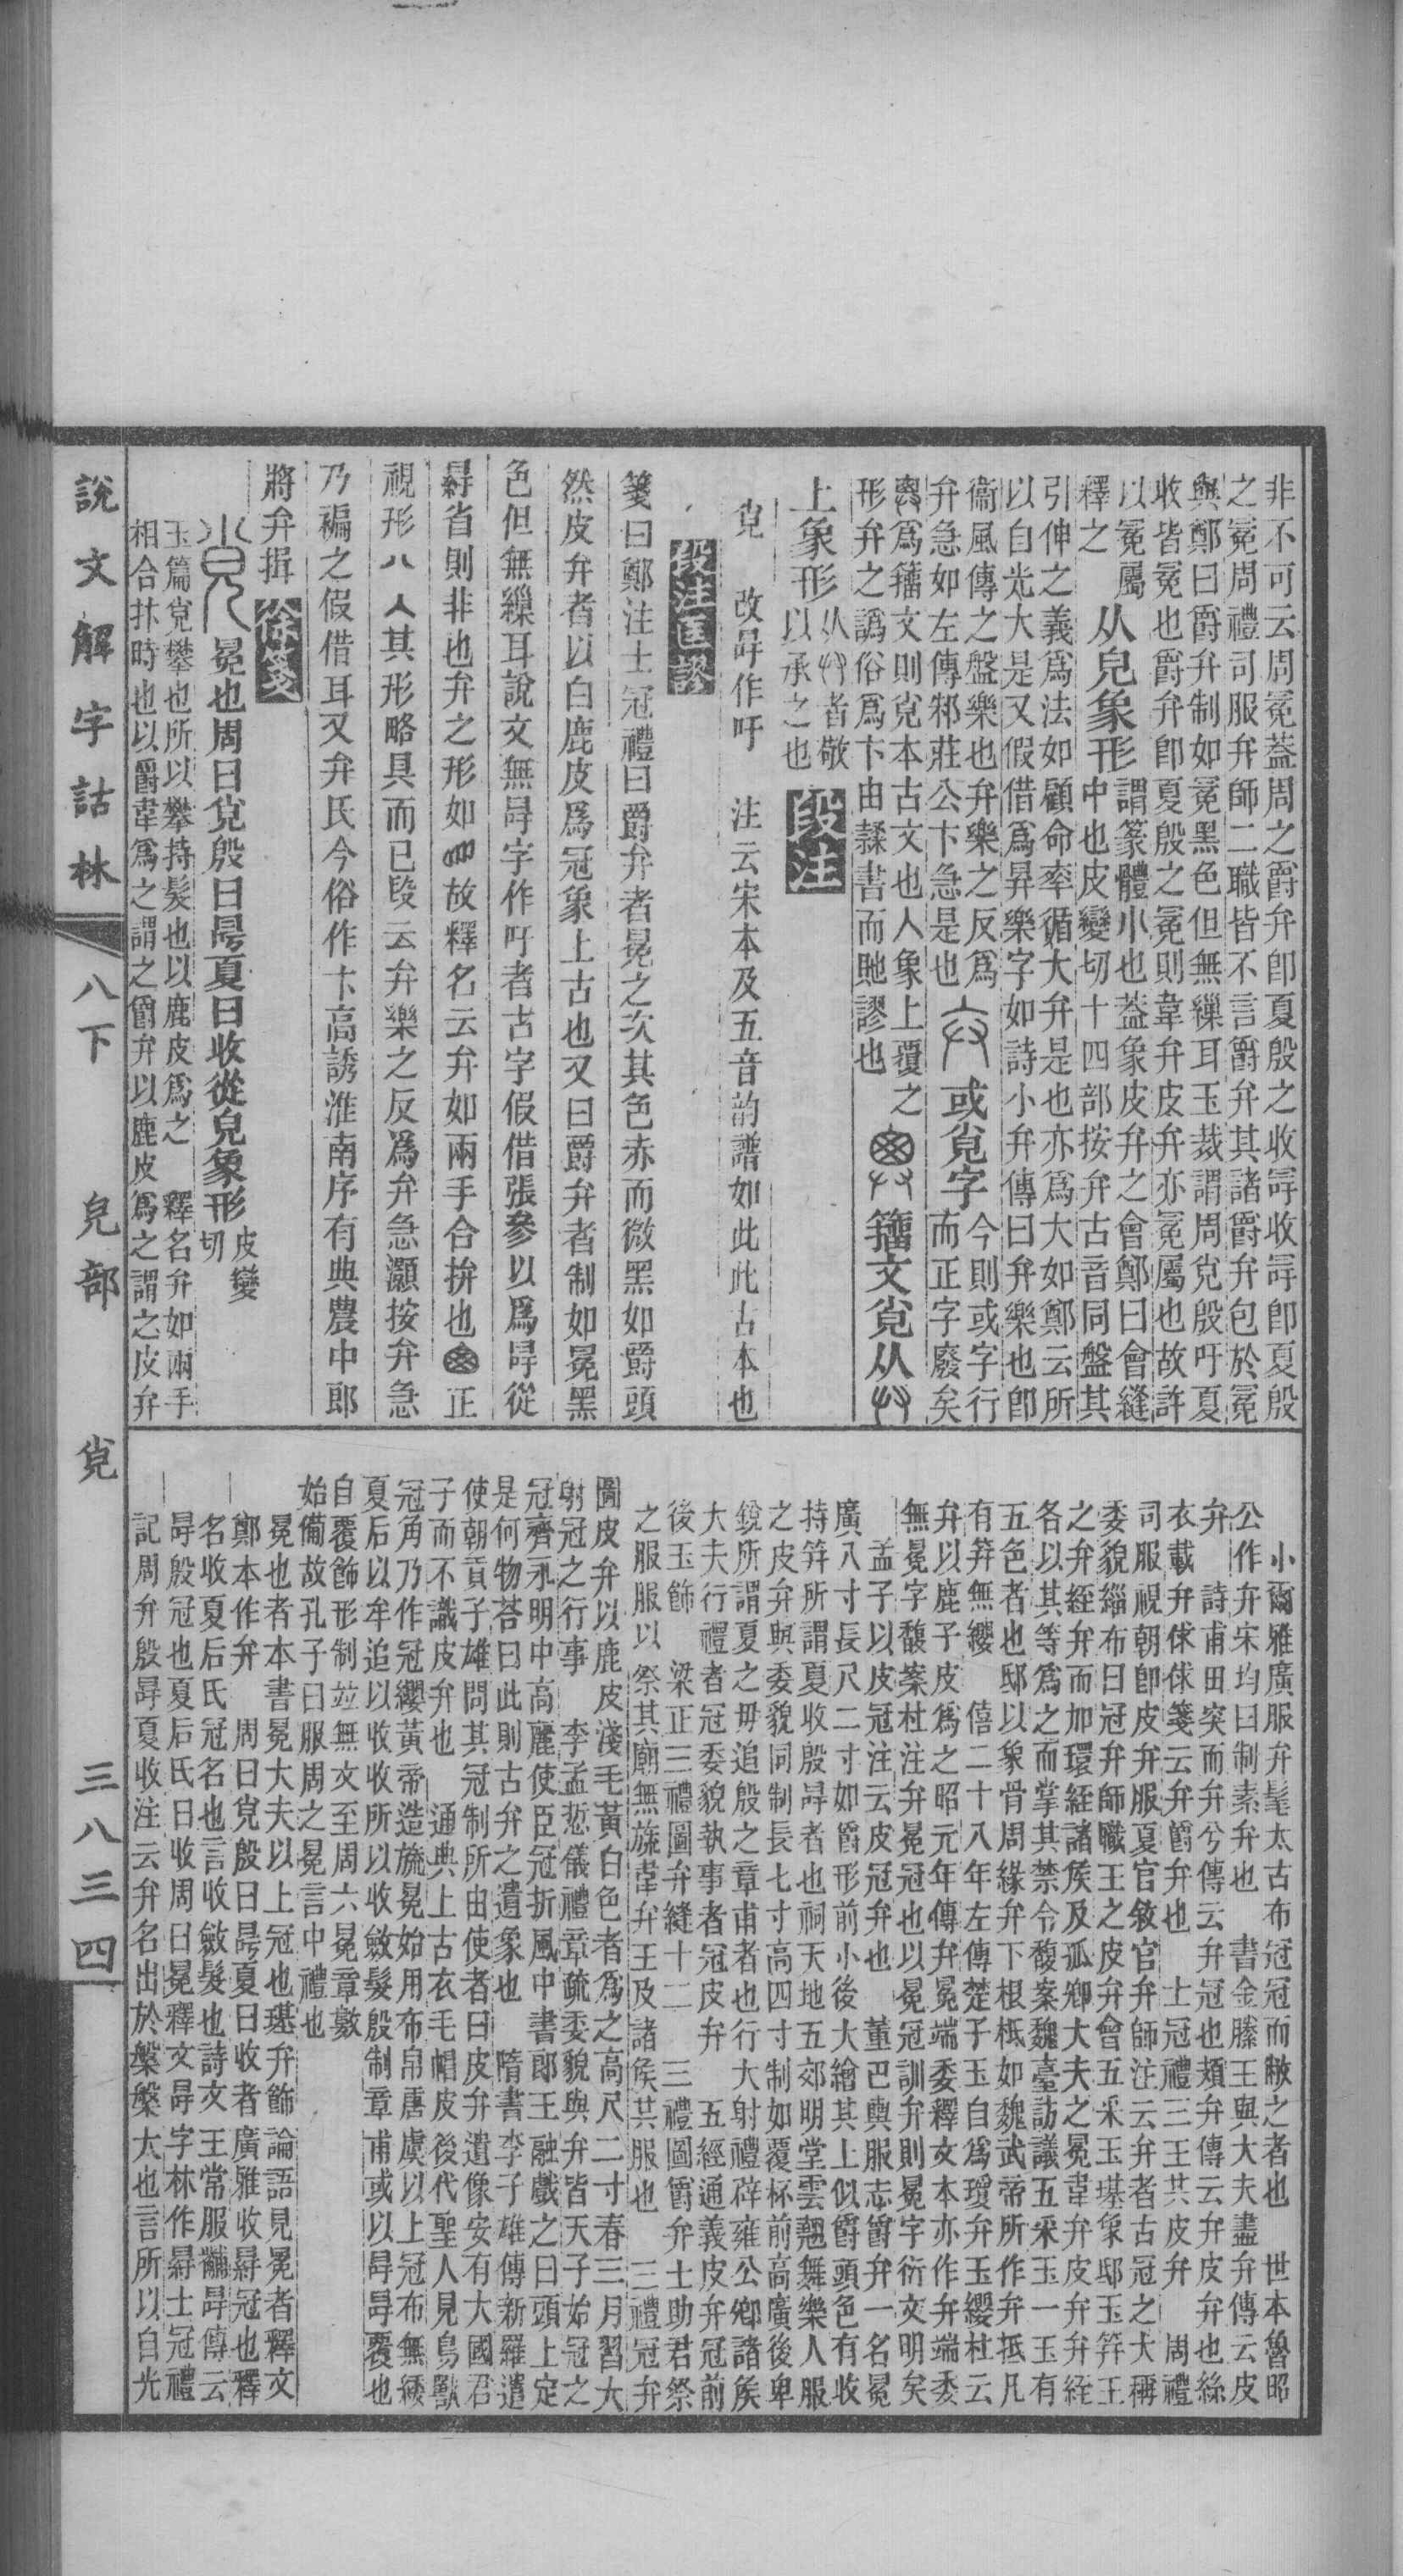 非不可云周冕葢周之爵弁卽夏殷之收冔收冔卽夏殷
之冕周禮司服弁師二職皆不言爵弁其諸爵弁包於冕
與鄭曰爵弁制如冕黑色但無繅耳玉裁謂周覍殷吁夏
收皆冕也爵弁卽夏殷之冕則韋弁皮弁亦冕屬也故許
以冕屬
釋之
从皃象形
謂篆體小也葢象皮弁之會鄭曰會縫
中也皮變切十四部按弁古音同盤其
引伸之義爲法如顧命率循大弁是也亦爲大如鄭云所
以自光大是又假借爲昇樂字如詩小弁傳曰弁樂也卽
衞風傳之盤樂也弁樂之反爲
弁急如左傳邾莊公卞急是也
或覍字
今則或字行
而正字廢矣
爲籒文則覍本古文也人象上覆之
籒文覍从
形弁之譌俗爲卞由隷書而貤謬也
上象形
从者敬
以承之也
段注
覍 改冔作吁 注云宋本及五音韵譜如此此古本也
段注匡謬
箋曰鄭注士冠禮曰爵弁者冕之次其色赤而微黑如爵頭
然皮弁者以白鹿皮爲冠象上古也又曰爵弁者制如冕黑
色但無繅耳說文無冔字作吁者古字假借張參以爲冔從
省則非也弁之形如故釋名云弁如兩手合拚也正
視形八人其形略具而已段云弁樂之反爲弁急灝按弁急
乃褊之假借耳又弁氏今俗作卞高誘淮南序有典農中郎
將弁揖
徐箋
冕也周曰覍殷曰冔夏曰收從皃象形
皮變
切
玉篇覍攀也所以攀持髮也以鹿皮爲之 釋名弁如兩手
相合抃時也以爵韋爲之謂之爵弁以鹿皮爲之謂之皮弁
小爾雅廣服弁髦太古布冠冠而敝之者也 世本魯昭
公作弁宋均曰制素弁也 書金縢王與大夫盡弁傳云皮
弁 詩甫田突而弁兮傳云弁冠也頍弁傳云弁皮弁也絲
衣載弁俅俅箋云弁爵弁也 士冠禮三王共皮弁 周禮
司服視朝卽皮弁服夏官敘官弁師注云弁者古冠之大稱
委貌緇布曰冠弁師職王之皮弁會五采玉璂象邸玉笄王
之弁絰弁而加環絰諸侯及孤卿大夫之冕韋弁皮弁弁絰
各以其等爲之而掌其禁令馥案魏臺訪議五采玉一玉有
五色者也邸以象骨周緣弁下根柢如魏武帝所作弁柢凡
有笄無纓 僖二十八年左傳楚子玉自爲瓊弁玉纓杜云
弁以鹿子皮爲之昭元年傳弁冕端委釋文本亦作弁端委
無冕字馥案杜注弁冕冠也以冕冠訓弁則冕字衍文明矣
孟子以皮冠注云皮冠弁也 董巴輿服志爵弁一名冕
廣八寸長尺二寸如爵形前小後大繪其上似爵頭色有收
持笄所謂夏收殷冔者也祠天地五郊明堂雲翹舞樂人服
之皮弁與委貌同制長七寸高四寸制如覆杯前高廣後卑
銳所謂夏之毋追殷之章甫者也行大射禮辟雍公卿諸侯
大夫行禮者冠委貌執事者冠皮弁 五經通義皮弁冠前
後玉飾 梁正三禮圖弁縫十二 三禮圖爵弁士助君祭
之服服以祭其廟無旒韋弁王及諸侯其服也 三禮冠弁
圖皮弁以鹿皮淺毛黃白色者爲之高尺二寸春三月習大
射冠之行事 李孟悊儀禮章疏委貌與弁皆天子始冠之
冠齊永明中高麗使臣冠折風中書郎王融戲之曰頭上定
是何物荅曰此則古弁之遺象也 隋書李子雄傳新羅遣
使朝貢子雄問其冠制所由使者曰皮弁遺像安有大國君
子而不識皮弁也 通典上古衣毛帽皮後代聖人見鳥獸
冠角乃作冠纓黃帝造旒冕始用布帛唐虞以上冠布無緌
夏后以牟追以收收所以收斂髮殷制章甫或以冔冔覆也
自覆飾形制竝無文至周六冕章數
始備故孔子曰服周之冕言中禮也
冕也者本書冕大夫以上冠也璂弁飾 論語見冕者釋文
鄭本作弁 周曰覍殷曰冔夏曰收者廣雅收冔冠也釋
名收夏后氏冠名也言收斂髮也詩文王常服黼冔傳云
冔殷冠也夏后氏曰收周曰冕釋文冔字林作冔士冠禮
記周弁殷冔夏收注云弁名出於槃槃大也言所以自光
說文解字詁林
八下
皃部
覍
三八三四